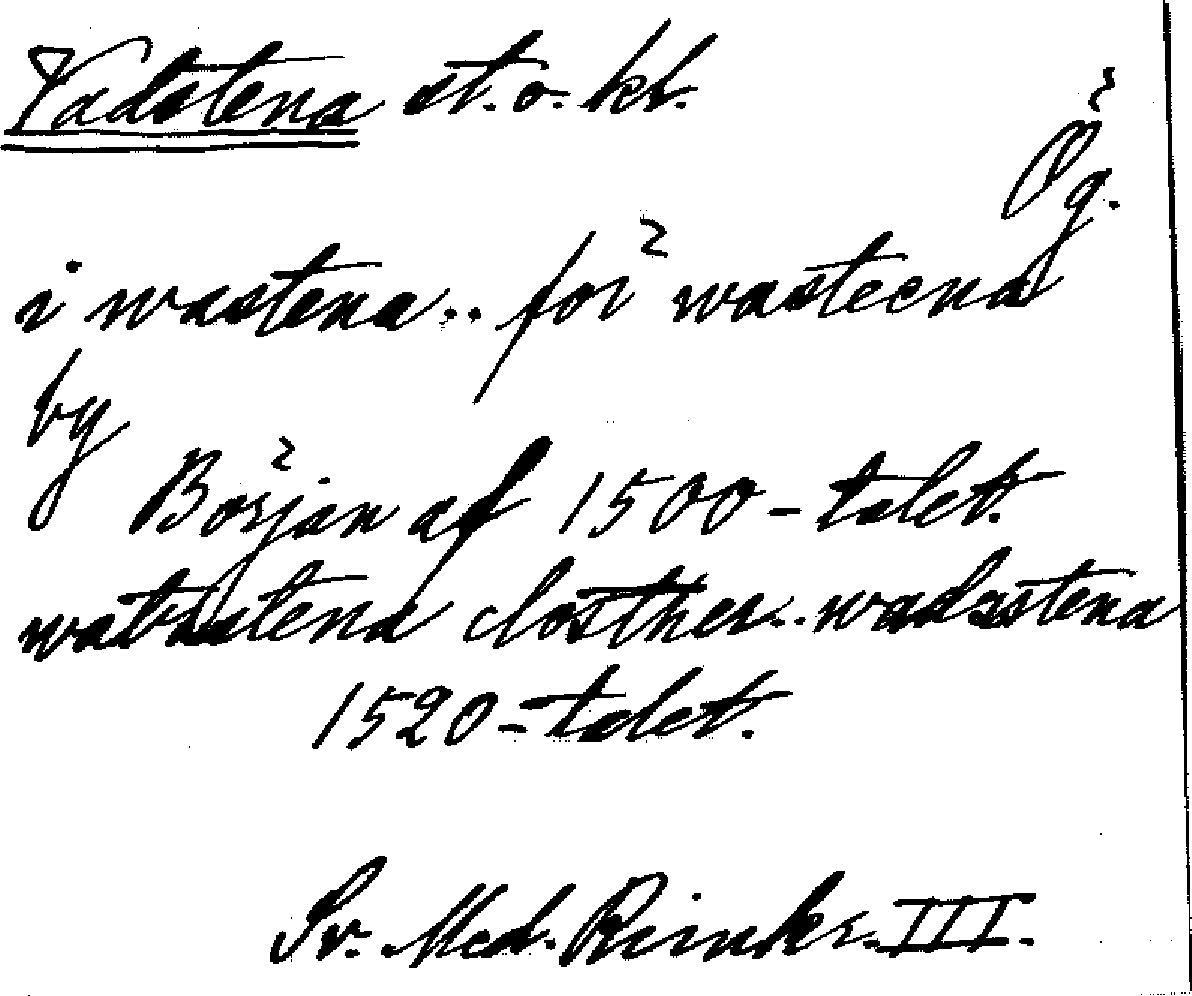 Vadstena st. o. kl.
Ög.
i wastena.. för wasteena
by
Början af 1500-talet.
watzstena closther.. wadzstena
1520-talet.
Sv. Med. Rimkr. III.